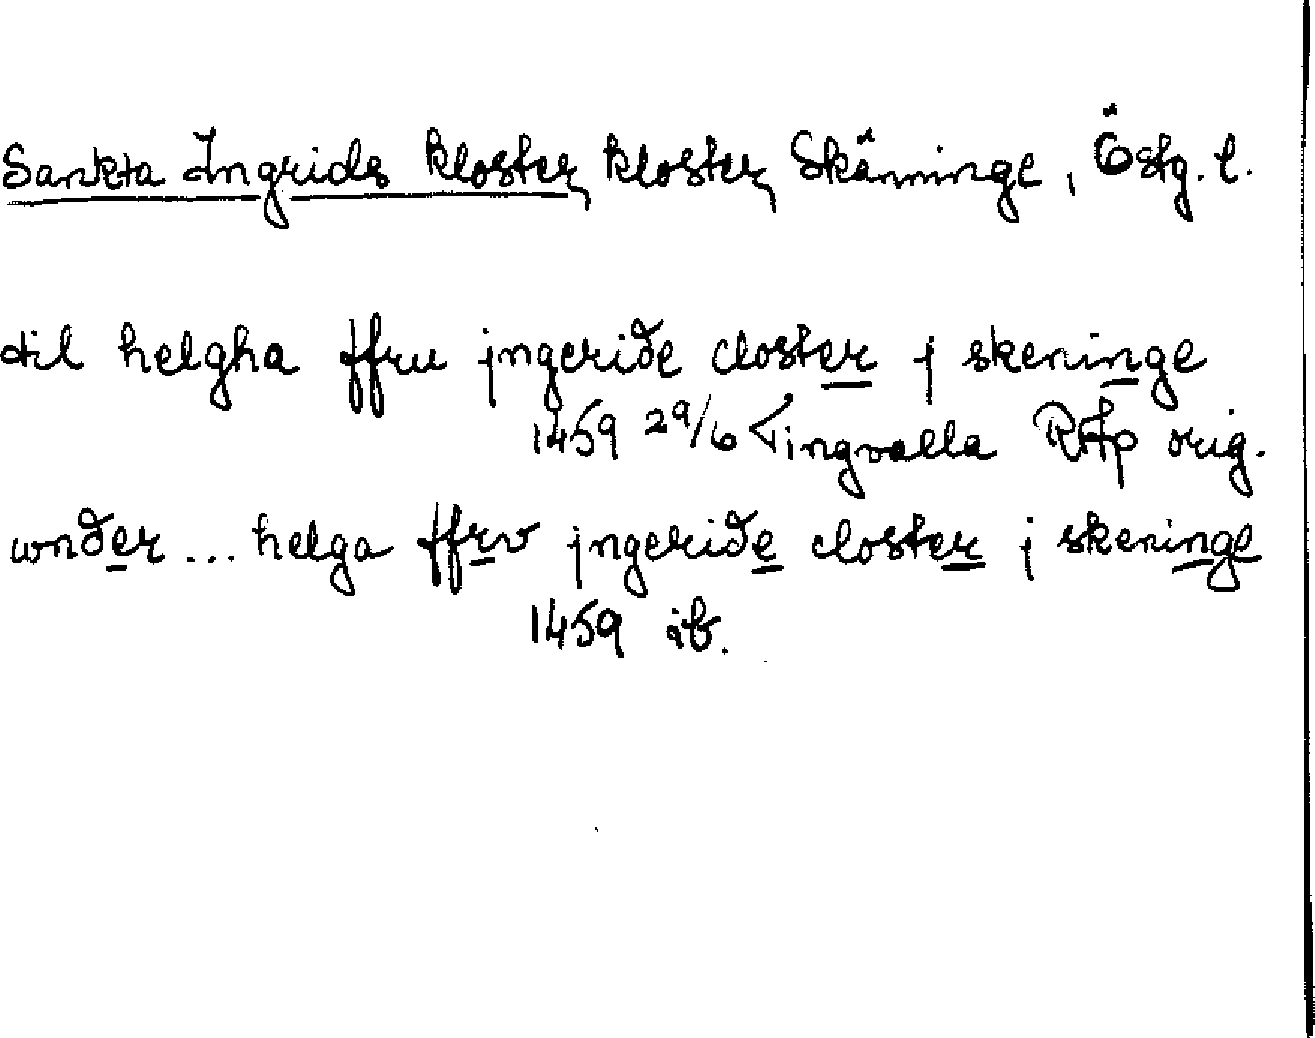 Sankta Ingrids kloster, kloster, Skänninge, Östg. l.
til helgha ffru jngeride closter j skeninge
1459 29/6 Tingvalla RAp orig.
wnder ... helga ffrv jngeride closter j skeninge
1459 ib.